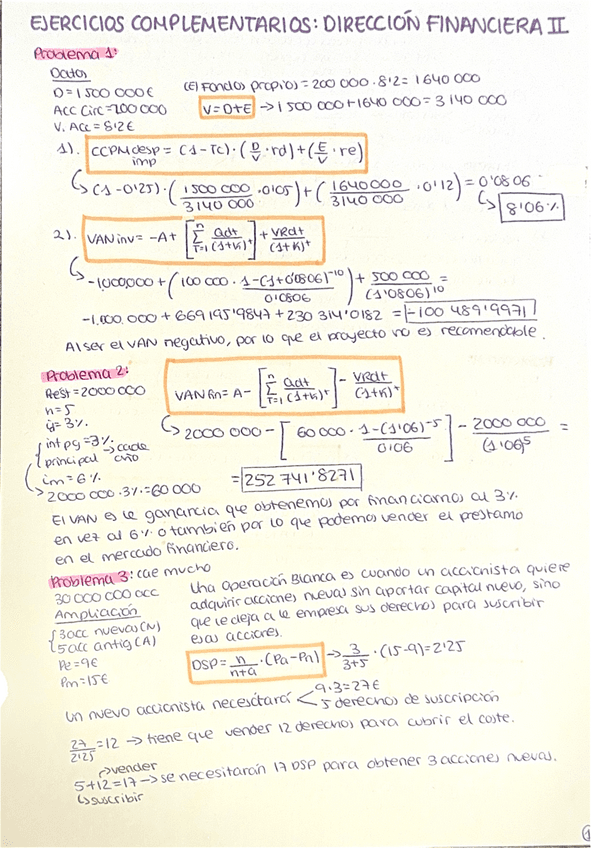 EJERCICIOS COMPLEMENTARIOS: DIRECCIÓN FINANCIERA II
Problema 1:
Datos
D = 1 500 000 €
Acc Circ = 200 000
V. Acc = 8'2 €
(E) Fondos propios = 200 000 · 8'2 = 1 640 000
V = D + E → 1 500 000 + 1640 000 = 3 140 000
1). CCPM desp imp = (1 - Tc) · (D/V · rd) + (E/V · re)
(1 - 0'25) · (1 500 000/3140 000 · 0'05) + (1640 000/3140 000 · 0'12) = 0'0806
8'06 %
2). VAN inv = -A + [n Σ T=1 Qdt/(1+K)^t] + VRdt/(1+K)^t
-1,000,000 + (100 000 · 1-(1+0'0806)^-10/0'0806) + 500 000/(1'0806)^10 =
-1.000.000 + 669 195'9847 + 230 314'0182 = -100 489'9971
Al ser el VAN negativo, por lo que el proyecto no es recomendable.
Problema 2:
Rest = 2000 000
n = 5
ij = 3%.
int pg = 3%.
principal → cada año
im = 6 %
2000 000 · 3% = 60 000
VAN fin = A - [n Σ T=1 Qdt/(1+K)^t] - VRdt/(1+K)^t
2000 000 - [60 000 · 1-(1'06)^-5/0'06] - 2000 000/(1'06)^5 =
= 252 741'8271
El VAN es la ganancia que obtenemos por financiarnos al 3%
en vez al 6% o también por lo que podemos vender el préstamo
en el mercado financiero.
Problema 3: cae mucho
30 000 000 acc
Ampliación
3 acc nuevas (N)
5 acc antig (A)
Pe = 9 €
Pm = 15 €
Una Operación Blanca es cuando un accionista quiere
adquirir acciones nuevas sin aportar capital nuevo, sino
que le deja a la empresa sus derechos para suscribir
esas acciones.
DSP = n/n+a · (Pa - Pn) → 3/3+5 · (15-9) = 2'25
Un nuevo accionista necesitará
9 · 3 = 27 €
5 derechos de suscripción
27/2'25 = 12 → tiene que vender 12 derechos para cubrir el coste.
vender
5 + 12 = 17 → se necesitarán 17 DSP para obtener 3 acciones nuevas.
suscribir
1